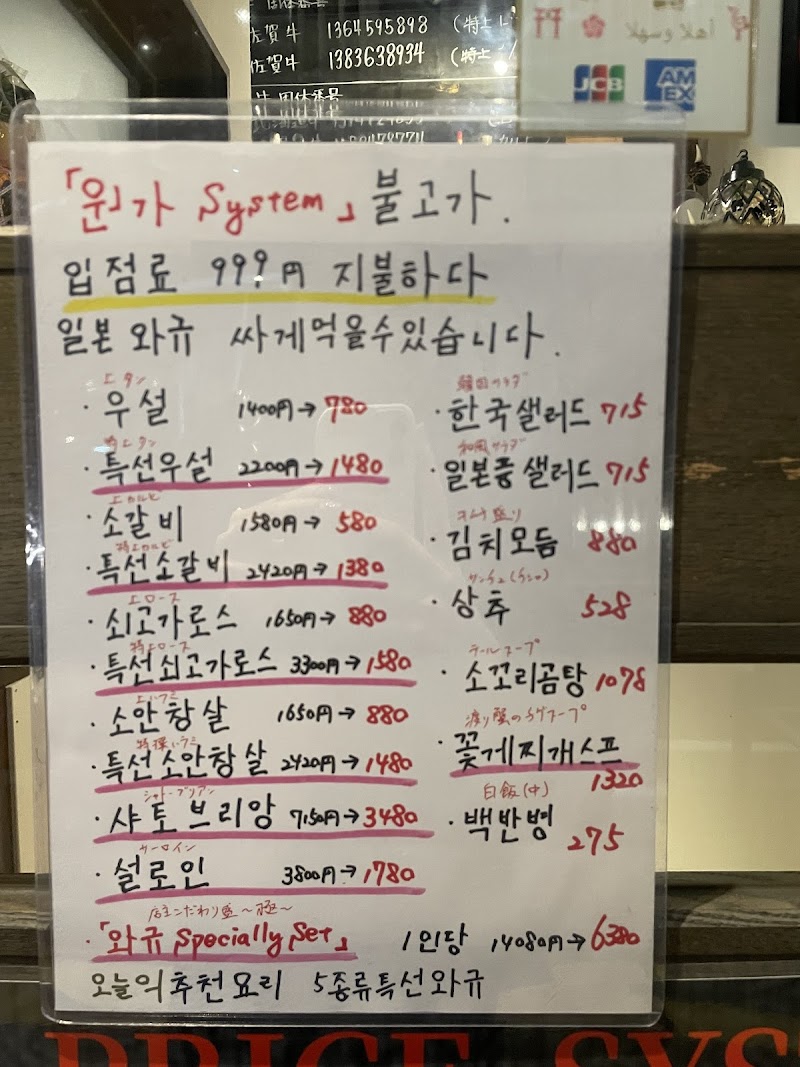 佐賀牛 1364595898 (特上
佐賀牛 1383638934 (特上
أهلا وسهلا
JCB
AM EX
「원가 System」 불고가.
입점료 999円 지불하다
일본 와규 싸게먹을수있습니다.
上タン
・우설 1400円→780
特上タン
・특선우설 2200円→1480
上カルビ
・소갈비 1580円→580
特上カルビ
・특선소갈비 2420円→1380
上ロース
・쇠고가로스 1650円→880
特上ロース
・특선쇠고가로스 3300円→1580
上ハラミ
・소안창살 1650円→880
特撰ハラミ
・특선소안창살 2420円→1480
シャトーブリアン
・샤토브리앙 7150円→3480
サーロイン
・설로인 3800円→1780
韓国サラダ
・한국샐러드 715
和風サラダ
・일본풍샐러드 715
キムチ盛り
・김치모듬 880
サンチュ
・상추 528
テールスープ
・소꼬리곰탕 1078
渡り蟹のチゲスープ
・꽃게찌개스프 1320
白飯(中)
・백반병 275
店主こだわり盛〜極〜
・「와규 Specially Set」 1인당 14080円→6380
오늘의추천요리 5종류특선와규
PRICE SYS